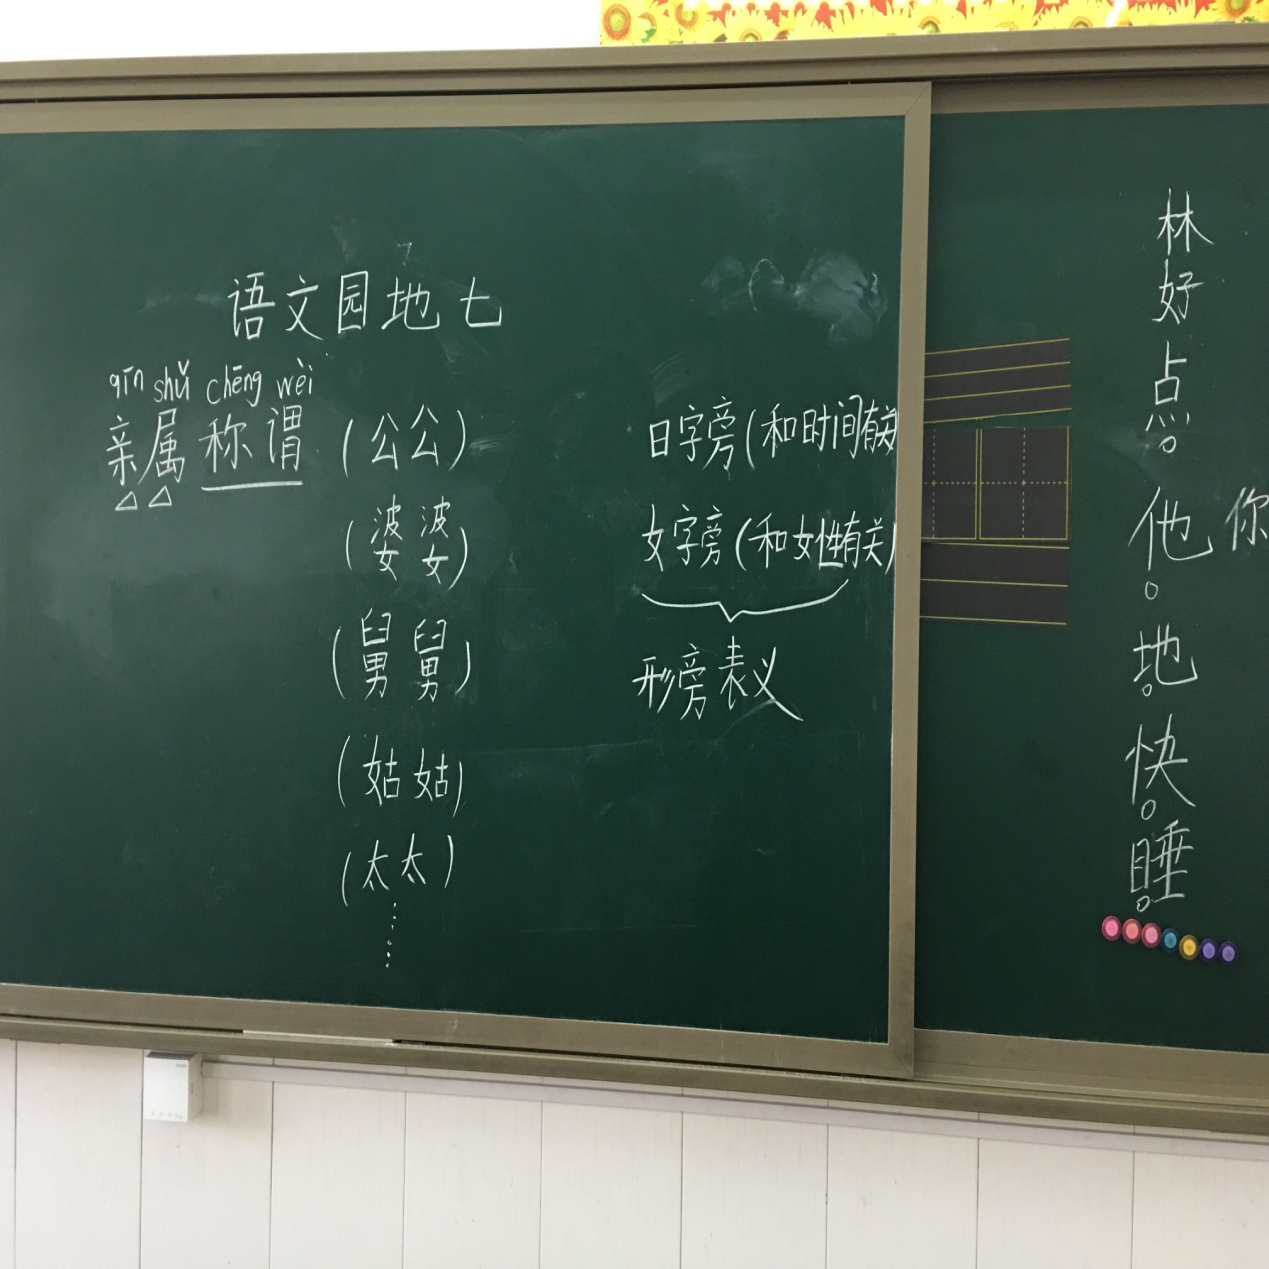 语文园地七
qīn shǔ chēng wèi
亲属称谓
(公公)
(婆婆)
(舅舅)
(姑姑)
(太太)
……
日字旁(和时间有关
女字旁(和女性有关)
形旁表义
林
好
点
他
你
地
快
睡